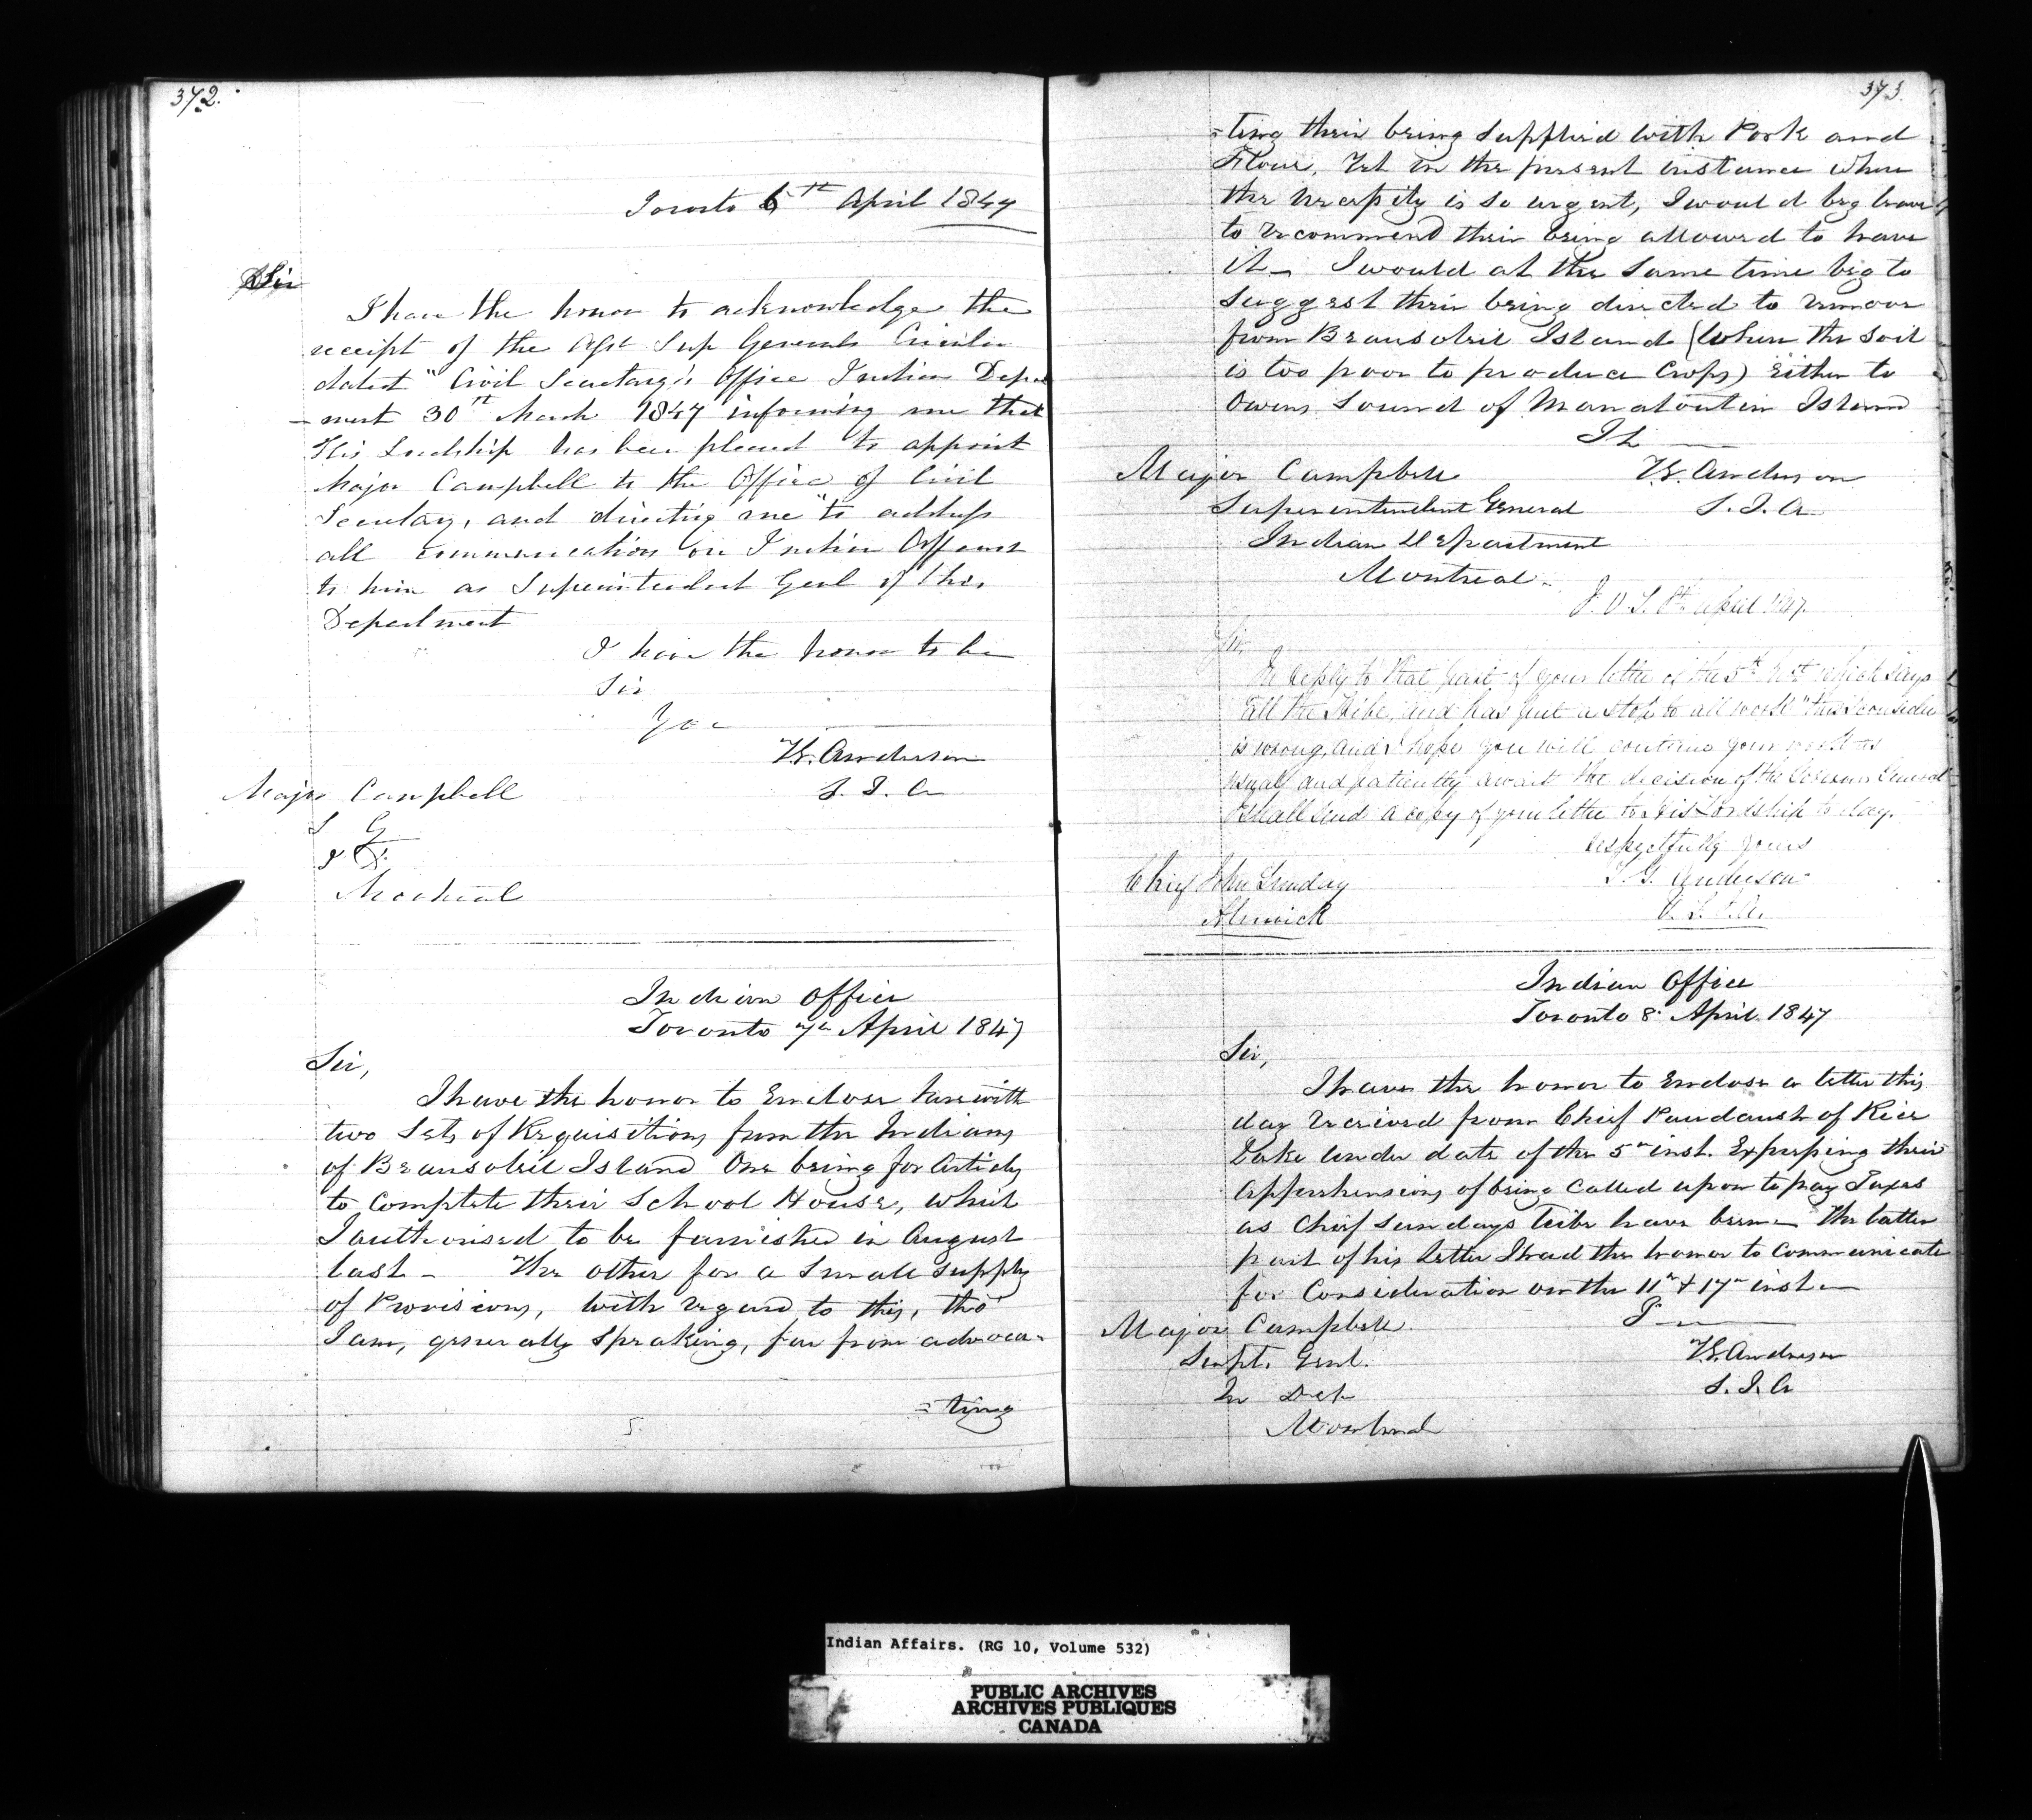 372.
Toronto 6th April 1847
Sir
I have the honor to acknowledge the
receipt of the Asst Sup Generals Circular
dated "Civil Secretary's Office Indian Depart
-ment 30th March 1847 informing me that
His Lordship has been pleased to appoint
Major Campbell to the Office of Civil
Secretary, and directing me "to address
all communications on Indian Affairs
to him as Superintendent Genl of this
Department
I have the honor to be
Sir
You
T.G. Anderson
S. I. A
Major Campbell
S G
I D.
Montreal
Indian Office
Toronto 7th April 1847
Sir,
I have the honor to Enclose herewith
two Sets of Requisitions from the Indians
of Beausoleil Island One being for Articles
to complete their School House, which
I authorised to be furnished in August
last - The other for a Small supply
of Provisions, with regard to this, tho'
I am, generally speaking, far from advoca-
=ting
373.
=ting their being supplied with Pork and
Flour, Yet in the present instance where
the necessity is so urgent, I would beg leave
to recommend their being allowed to have
it - I would at the same time beg to
suggest their being directed to remove
from Beausoleil Island (where the soil
is too poor to produce Crops) Either to
Owens Sound or Manatoulin Island
I h
Major Campbell
T.G. Anderson
Superintendent General
S. I. A
Indian Department
Montreal.
April 1847.
Sir,
In reply to that part of your letter of the 5th Inst which says
all the Tribe, and has put a stop to all work" this I consider
is wrong, and I hope you will continue your work as
usual and patiently await the decision of the Governor General
I shall send a copy of your letter to His Lordship to day.
respectfully yours
Chief John Sunday
T. G. Anderson
Alnwick
Indian Office
Toronto 8th April. 1847
Sir,
I have the honor to Enclose a letter this
day received from Chief Paudaush of Rice
Lake under date of the 5th inst. Expressing their
apprehensions of being called upon to pay Taxes
as Chief Sundays tribe have been - The latter
part of his letter I had the honor to communicate
for Consideration on the 11th & 17th inst -
Major Campbell
Supt. Genl.
T.G. Anderson
In Dep
S. I. A
Montreal
Indian Affairs. (RG 10, Volume 532)
PUBLIC ARCHIVES
ARCHIVES PUBLIQUES
CANADA